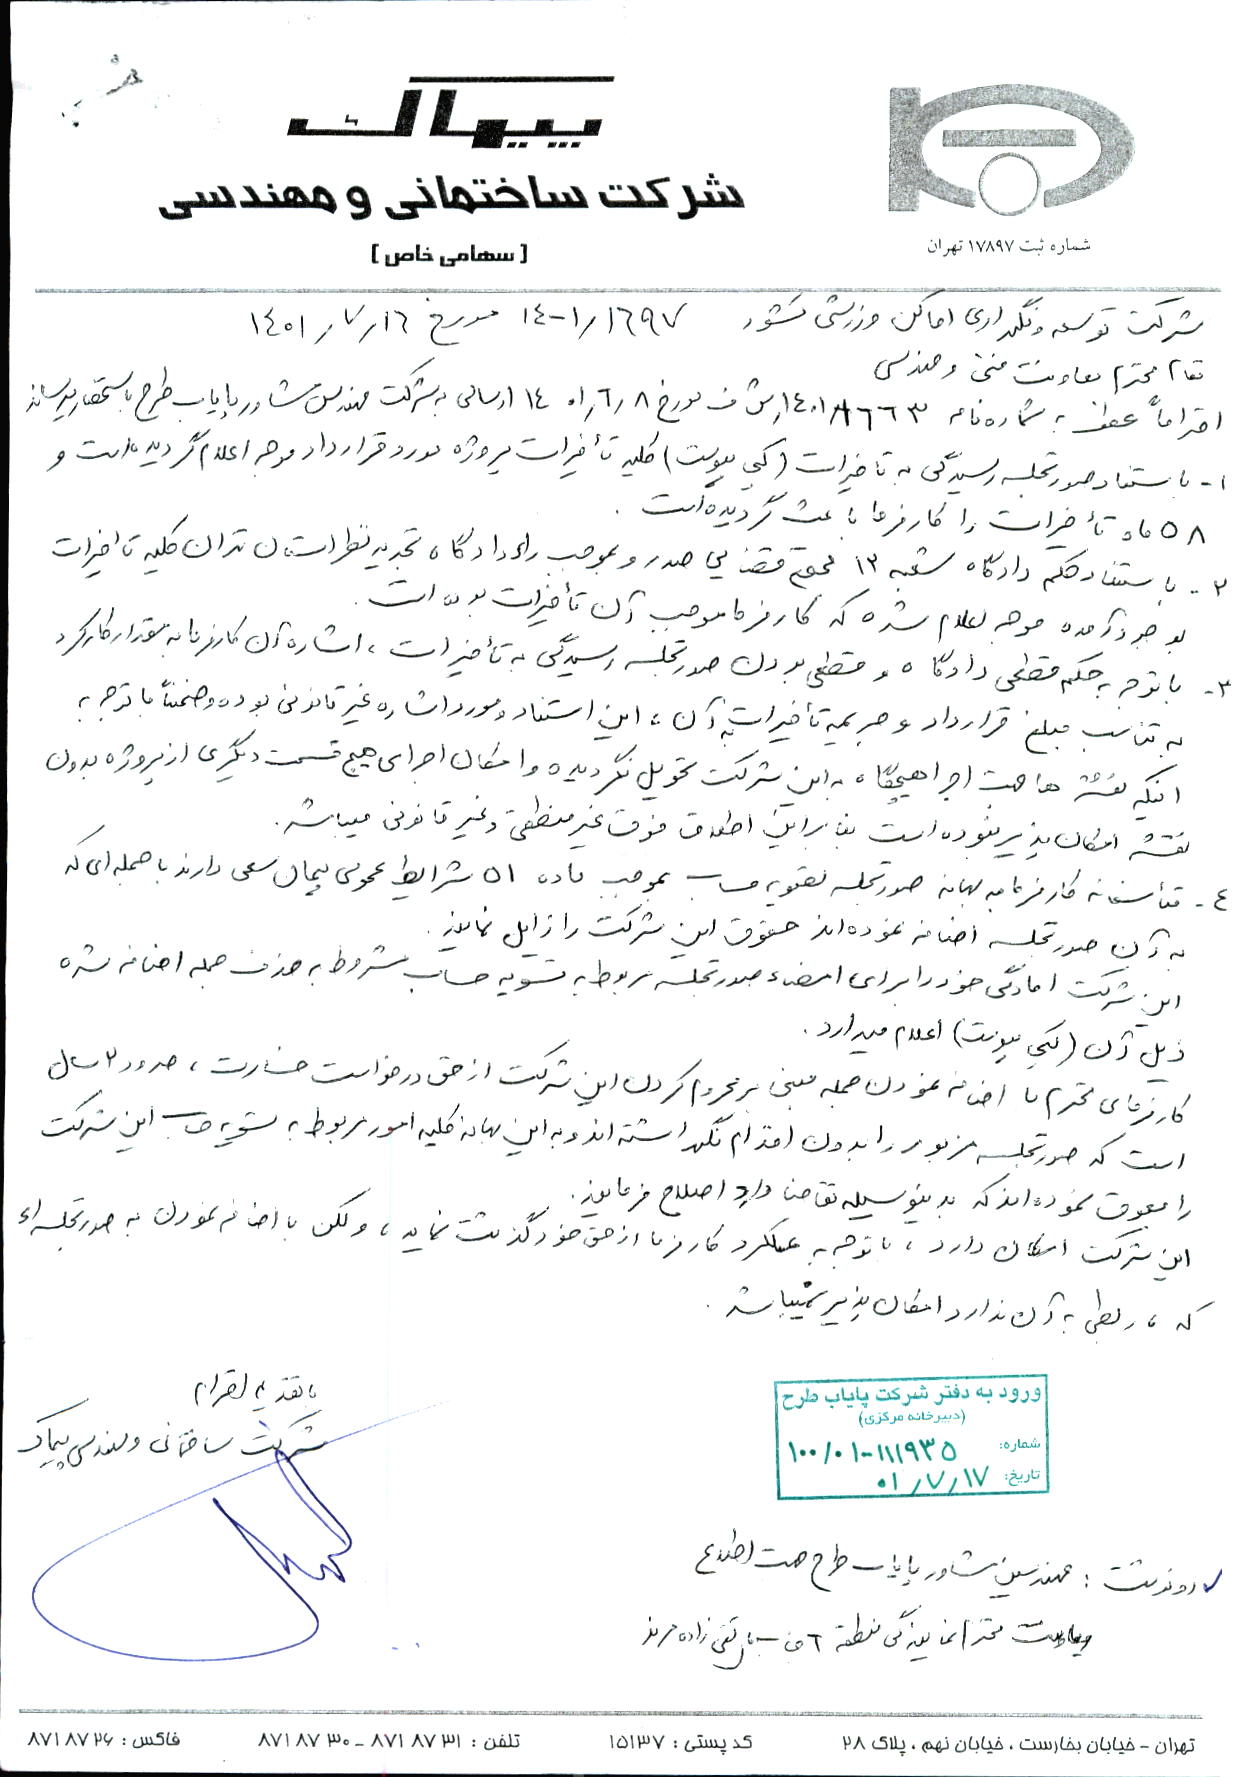 پیماک
شرکت ساختمانی و مهندسی
[ سهامی خاص ]
شماره ثبت ۱۷۸۹۷ تهران
شرکت توسعه و نگهداری اماکن ورزشی کشور ۱۴۰۱/۱۶۹۷ مورخ ۱۴۰۱/۷/۱۶
مقام محترم معاونت فنی و مهندسی
احتراماً عطف به شماره نامه ۱۴۰۱/۸۶۶۳/ش ف مورخ ۱۴۰۱/۶/۸ ارسالی به شرکت مهندسی مشاور پایاب طرح باستحضار میرساند
۱- با ستناد صورتجلسه رسیدگی به تاخیرات (کپی پیوست) کلیه تأخیرات پروژه مورد قرارداد موجه اعلام گردیده است و
۵۸ ماه تأخیرات را کارفرما باعث گردیده است .
۲- با ستناد حکم دادگاه شعبه ۱۲ مجتمع قضایی صدر و بموجب رای دادگاه تجدید نظر استان تهران کلیه تاخیرات
بوجود آمده موجه اعلام شده که کارفرما موجب آن تأخیرات بوده است .
۳- با توجه به حکم قطعی دادگاه و قطعی بودن صورتجلسه رسیدگی به تأخیرات ، اشاره آن کارفرما به مقدار کارکرد
به تناسب مبلغ قرارداد و جریمه تأخیرات به آن ، این استناد و مورد اشاره غیر قانونی بوده و ضمناً با توجه به
اینکه نقشه ها جهت اجرا هیچگاه به این شرکت تحویل نگردیده و امکان اجرای هیچ قسمت دیگری از پروژه بدون
نقشه امکان پذیر نبوده است بنابراین اطلاق فوق غیر منطقی و غیر قانونی میباشد .
۴- متأسفانه کارفرما به بهانه صورتجلسه تصویه حساب بموجب ماده ۵۱ شرایط عمومی پیمان سعی دارند با جمله ای که
به آن صورتجلسه اضافه نموده اند حقوق این شرکت را زایل نمایند .
این شرکت امادگی خود را برای امضاء صورتجلسه مربوط به تسویه حساب مشروط به حذف جمله اضافه شده
ذیل آن (کپی پیوست) اعلام میدارد .
کارفرمای محترم با اضافه نمودن جمله مبنی بر محروم کردن این شرکت از حق درخواست خسارت ، حدود ۲ سال
است که صورتجلسه مزبور را بدون اقدام نگهداشته اند و به این بهانه کلیه امور مربوط به تسویه حساب این شرکت
را معوق نموده اند که بدینوسیله تقاضا دارد اصلاح فرمایند .
این شرکت امکان دارد ، با توجه به عملکرد کارفرما از حق خود گذشت نماید ، ولکن با اضافه نمودن به صورتجلسه اء
که ، ربطی به آن ندارد امکان پذیر نمیباشد .
با تقدیم احترام
شرکت ساختمانی و مهندسی پیماک
ورود به دفتر شرکت پایاب طرح
(دبیرخانه مرکزی)
شماره: ۱۰۰/۰۱-۱۱۱۹۳۵
تاریخ: ۰۱/۷/۱۷
رونوشت : مهندسین مشاور پایاب طرح جهت اطلاع
معاونت محترم نمایندگی منطقه ۶ تقی زاده
تهران - خیابان بخارست ، خیابان نهم ، پلاک ۲۸ کد پستی : ۱۵۱۳۷ تلفن : ۸۷۱۸۷۳۱ - ۸۷۱۸۷۳۰ فاکس : ۸۷۱۸۷۲۶